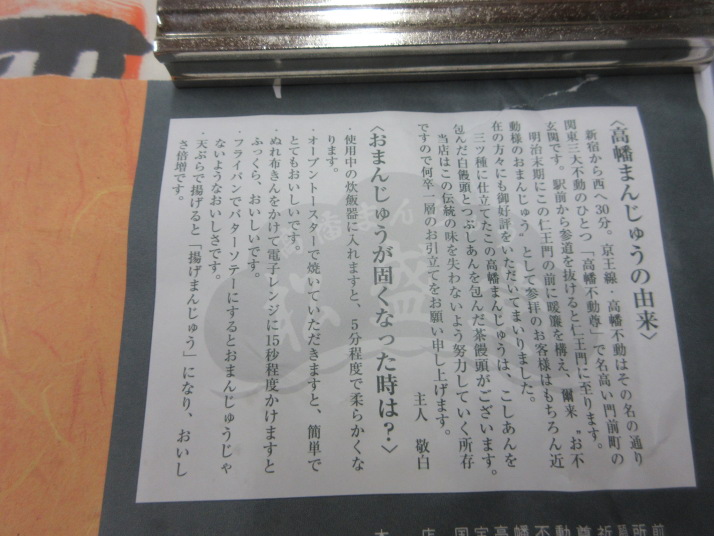 〈高幡まんじゅうの由来〉
新宿から西へ30分。京王線・高幡不動はその名の通り
関東三大不動のひとつ「高幡不動尊」で名高い門前町の
玄関です。駅前から参道を抜けると仁王門に至ります。
明治末期にこの仁王門の前に暖簾を構え、爾来〝お不
動様のおまんじゅう〟として参拝のお客様はもちろん近
在の方々にも御好評をいただいてまいりました。
三ツ種に仕立てたこの高幡まんじゅうは、こしあんを
包んだ白饅頭とつぶしあんを包んだ茶饅頭がございます。
当店はこの伝統の味を失わないよう努力していく所存
ですので何卒一層のお引立てをお願い申し上げます。
主人 敬白
〈おまんじゅうが固くなった時は?〉
・使用中の炊飯器に入れますと、5分程度で柔らかくな
ります。
・オーブントースターで焼いていただきますと、簡単で
とてもおいしいです。
・ぬれ布きんをかけて電子レンジに15秒程度かけますと
ふっくら、おいしいです。
・フライパンでバターソテーにするとおまんじゅうじゃ
ないようなおいしさです。
・天ぷらで揚げると「揚げまんじゅう」になり、おいし
さ倍増です。
高幡まん
松盛
本 店 国宝高幡不動尊祈
所前